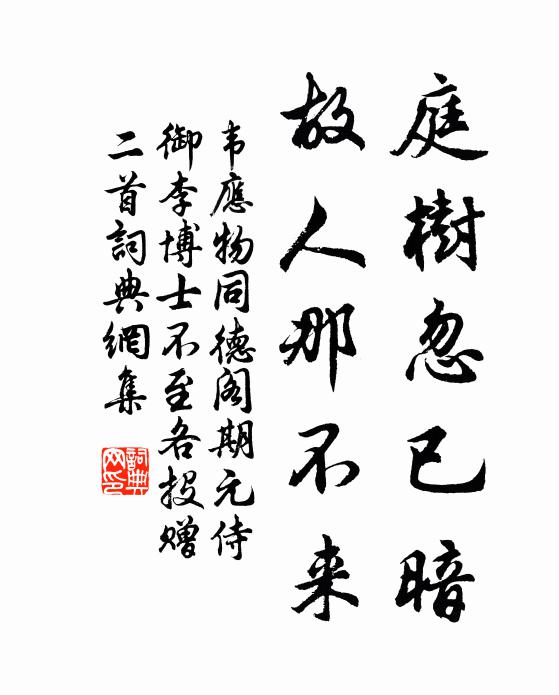 庭樹忽已暗
故人那不来
韦應物同德阁期元侍
御李博士不至各投赠
二首詞典網集
詞典网印